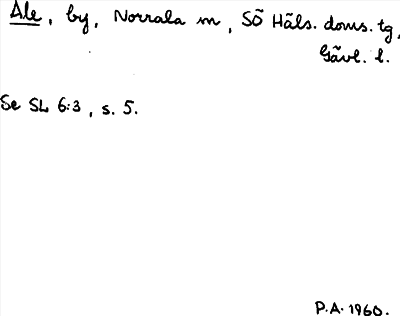 Ale, by, Norrala sn, SÖ Häls. doms. tg,
Gävl. l.
Se SL 6:3, s. 5.
P.A. 1960.